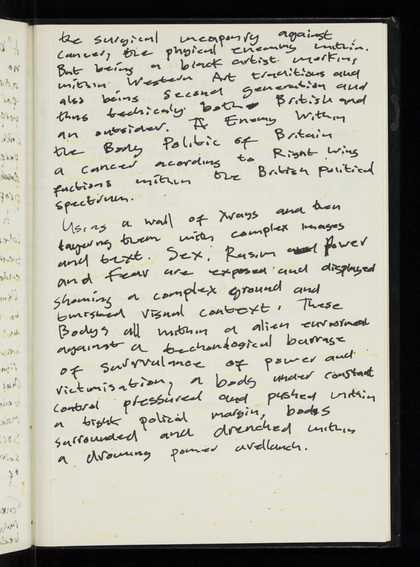 the surgical weaponry against
cancer, the phyical enemey within.
But being a black artist working
within Western Art traditions and
also being second generation and
thus techicaly both British and
an outsider. A Enemy Within
the Body Politic of Britain
a cancer acording to Right Wing
factions within the British political
spectrum.
Using a wall of Xrays and then
layering them with complex images
and text. Sex, Racism and Power
and Fear are exposed and displayed
showing a complex ground and
visual context. These
Bodys all within a alien
against a technological barrage
of survalance of power and
victimisation, a body under constant
control pressured and pushed within
a tight polical margin, bodys
surrounded and drenched within
a drowning power avalanch.